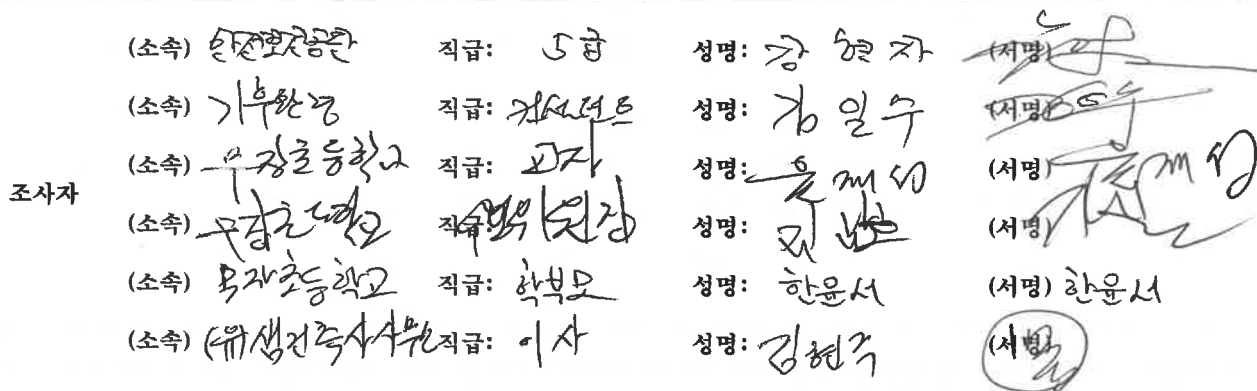 (소속) 안전보건공단 직급: 5급 성명: 강현자 (서명)
(소속) 기후환경 직급: 컨설턴트 성명: 김일수 (서명)
(소속) 무장초등학교 직급: 교장 성명: 윤재성 (서명) 윤재성
조사자
(소속) 무장초등학교 직급: 운영위원장 성명: (서명)
(소속) 무장초등학교 직급: 학부모 성명: 한윤서 (서명) 한윤서
(소속) (유)샘건축사사무소 직급: 이사 성명: 김현국 (서명)